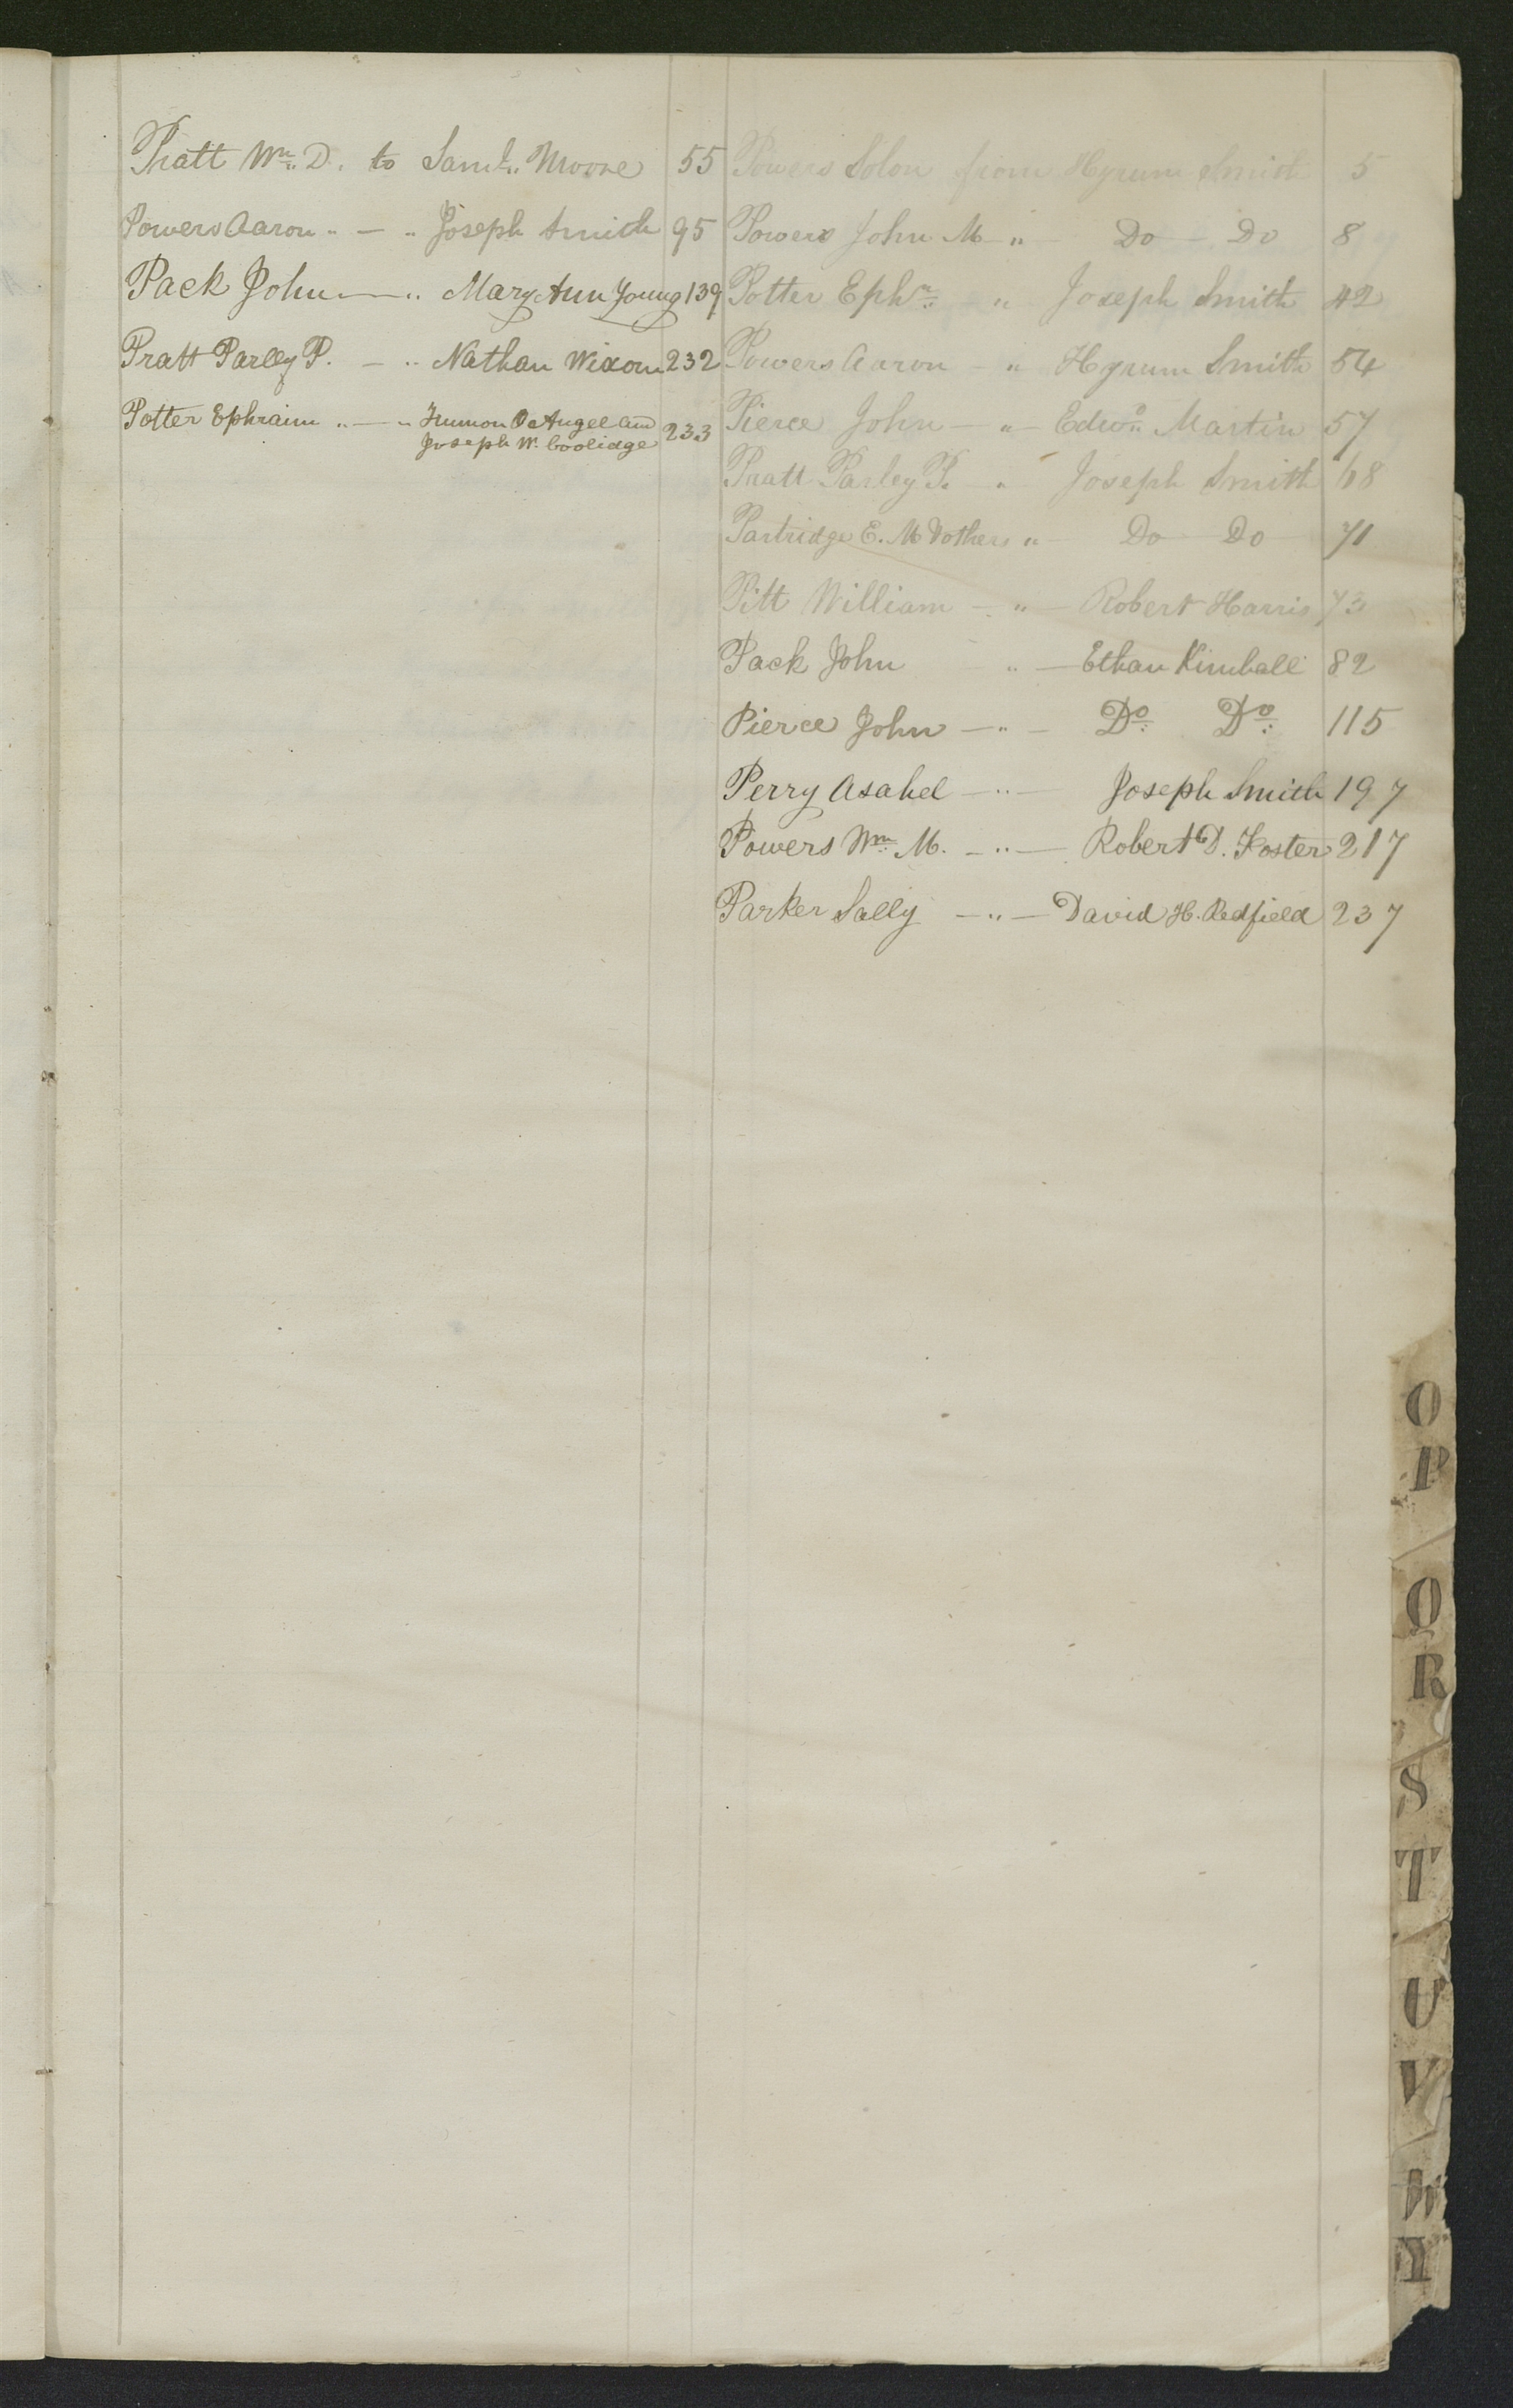 Pratt Wm. D. to Saml. Moore 55
Powers Aaron " — " Joseph Smith 95
Pack John — " Mary Ann Young 139
Pratt Parley P. — " Nathan Wixom 232
Potter Ephraim " — " Trumon O. Angel and
Joseph W. Coolidge 233
Powers Solon from Hyrum Smith 5
Powers John M — " — Do — Do 8
Potter Ephm. — " Joseph Smith 42
Powers Aaron — " Hyrum Smith 54
Pierce John — " — Edwd. Martin 57
Pratt Parley P. — " Joseph Smith 68
Partridge E. M & others " — Do — Do — 71
Pitt William — " — Robert Harris 73
Pack John " — Ethan Kimball 82
Pierce John — " — Do. Do. 115
Perry Asahel — " — Joseph Smith 197
Powers Wm. M. — " — Robert D. Foster 217
Parker Sally — " — David H. Redfield 237
O
P
Q
R
S
T
U
V
W
Y